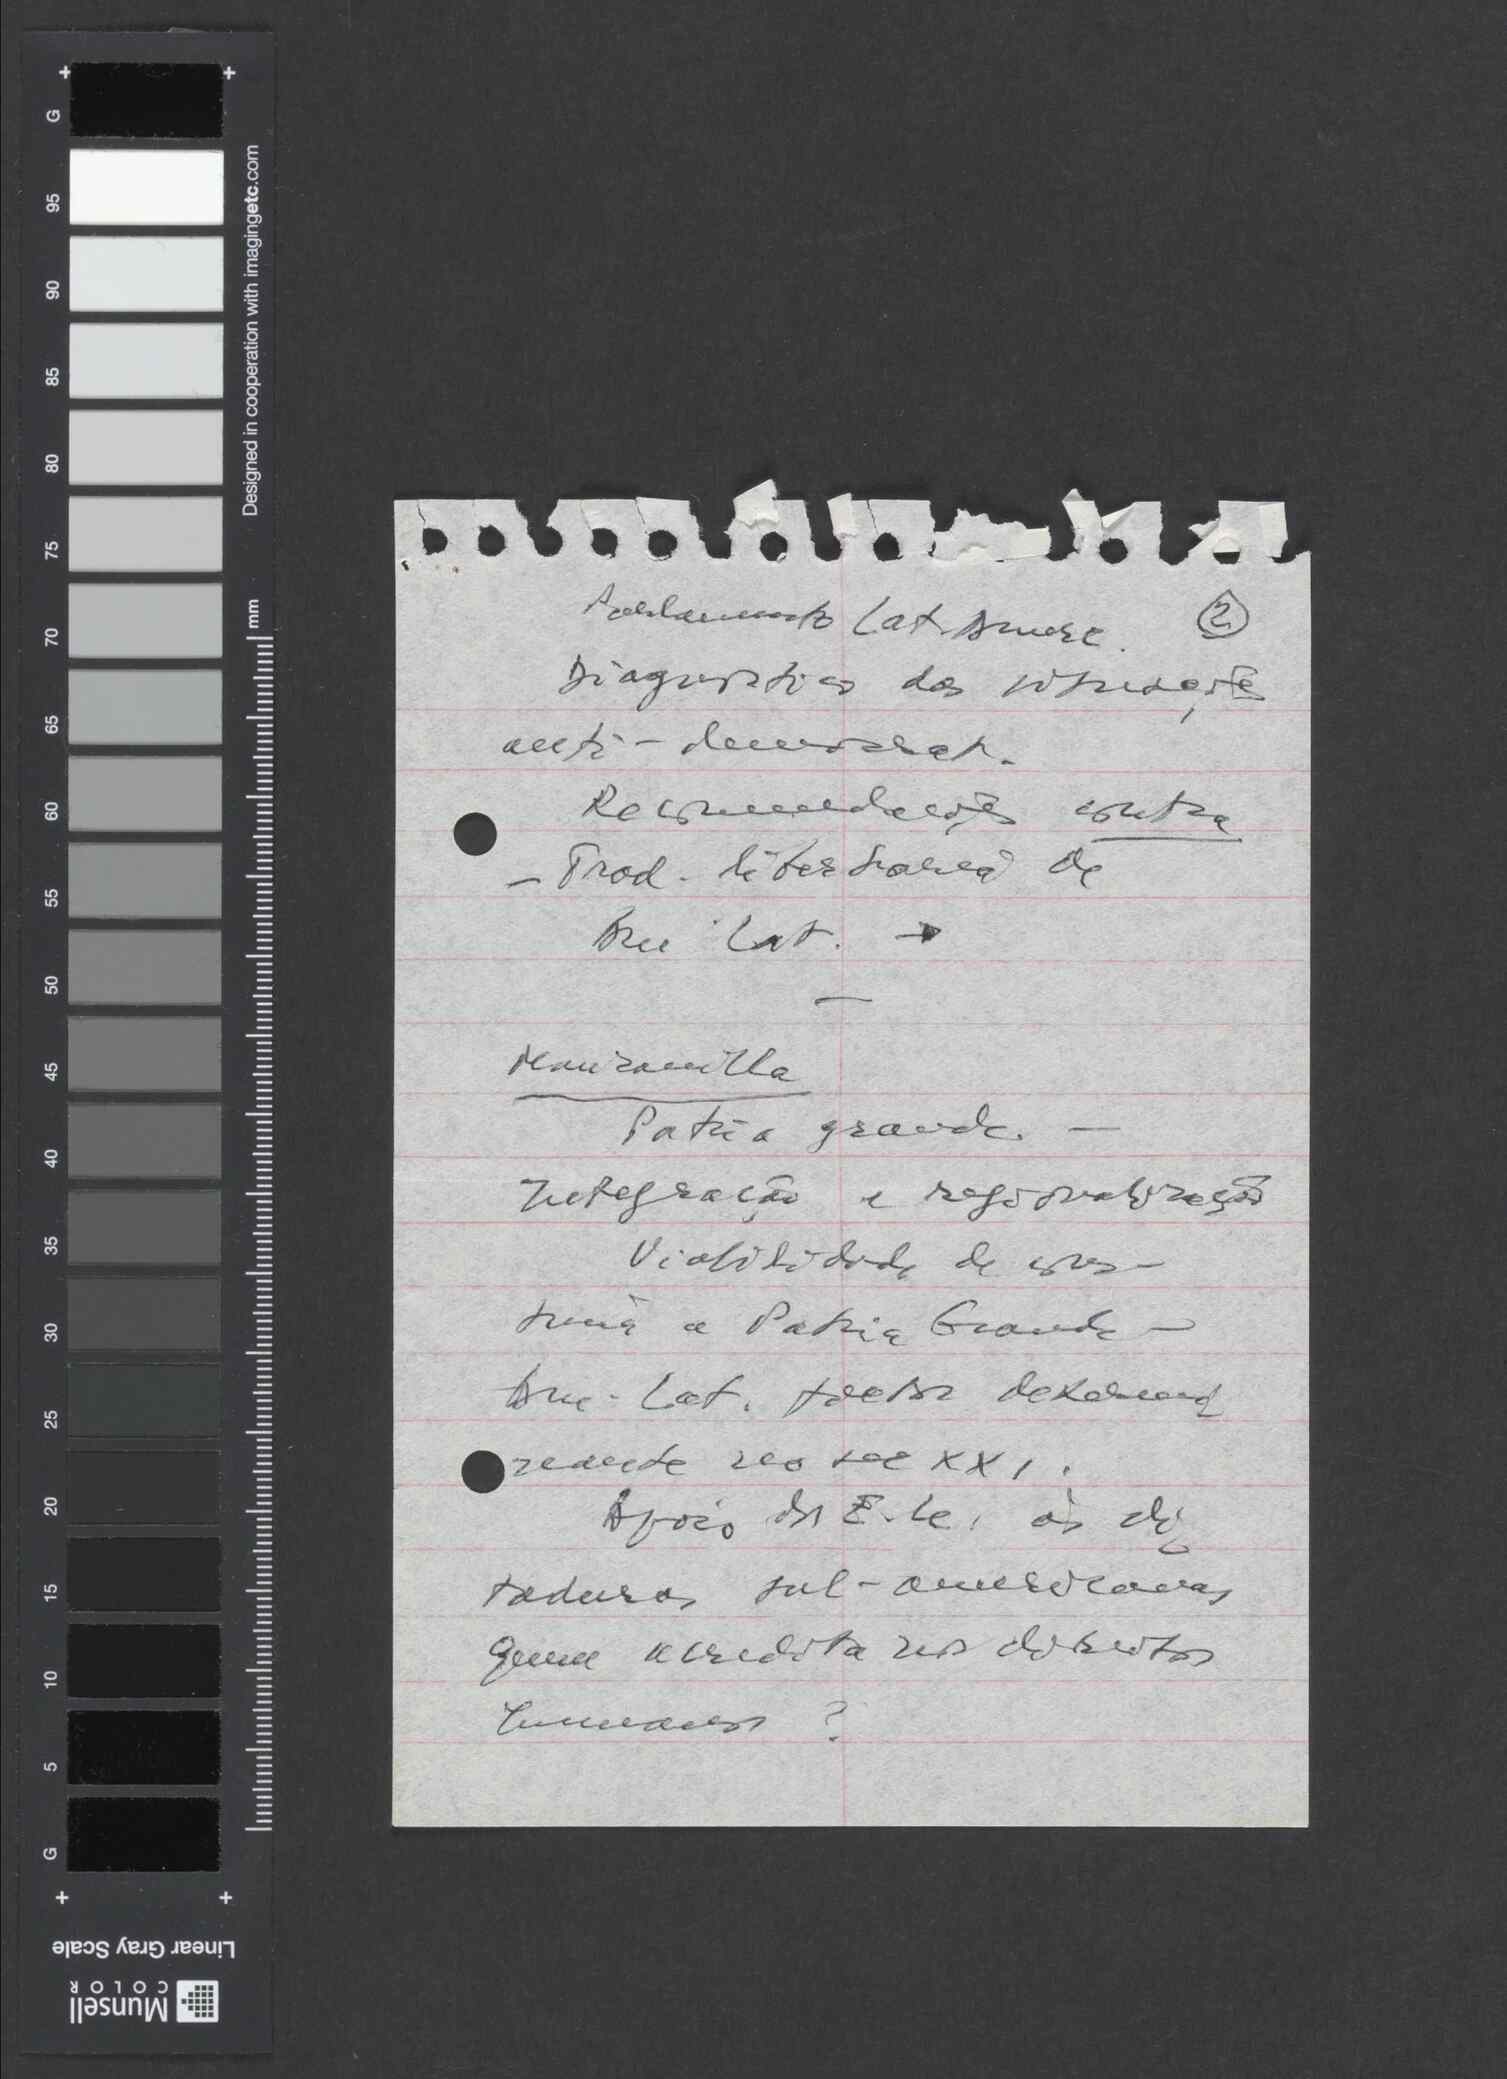 G
95
90
85
80
75
70
65
60
55
50
45
40
35
30
25
20
15
10
5
G
Designed in cooperation with imagingetc.com
mm
Linear Gray Scale
Munsell
COLOR
Parlamento Lat. Americ. 2
Diagnostico das situações
anti-democrat.
Recomendações contra
- Trad. libertaria de
Am Lat. →
—
Manzanilla
Patria grande. —
Integração e regionalização
Viabilidade de cons-
truir a Patria Grande —
Am. Lat. factor determi
nante no sec XXI.
Apoio dos E. Us. às di
taduras sul-americanas
Quem acredita nos direitos
humanos ?